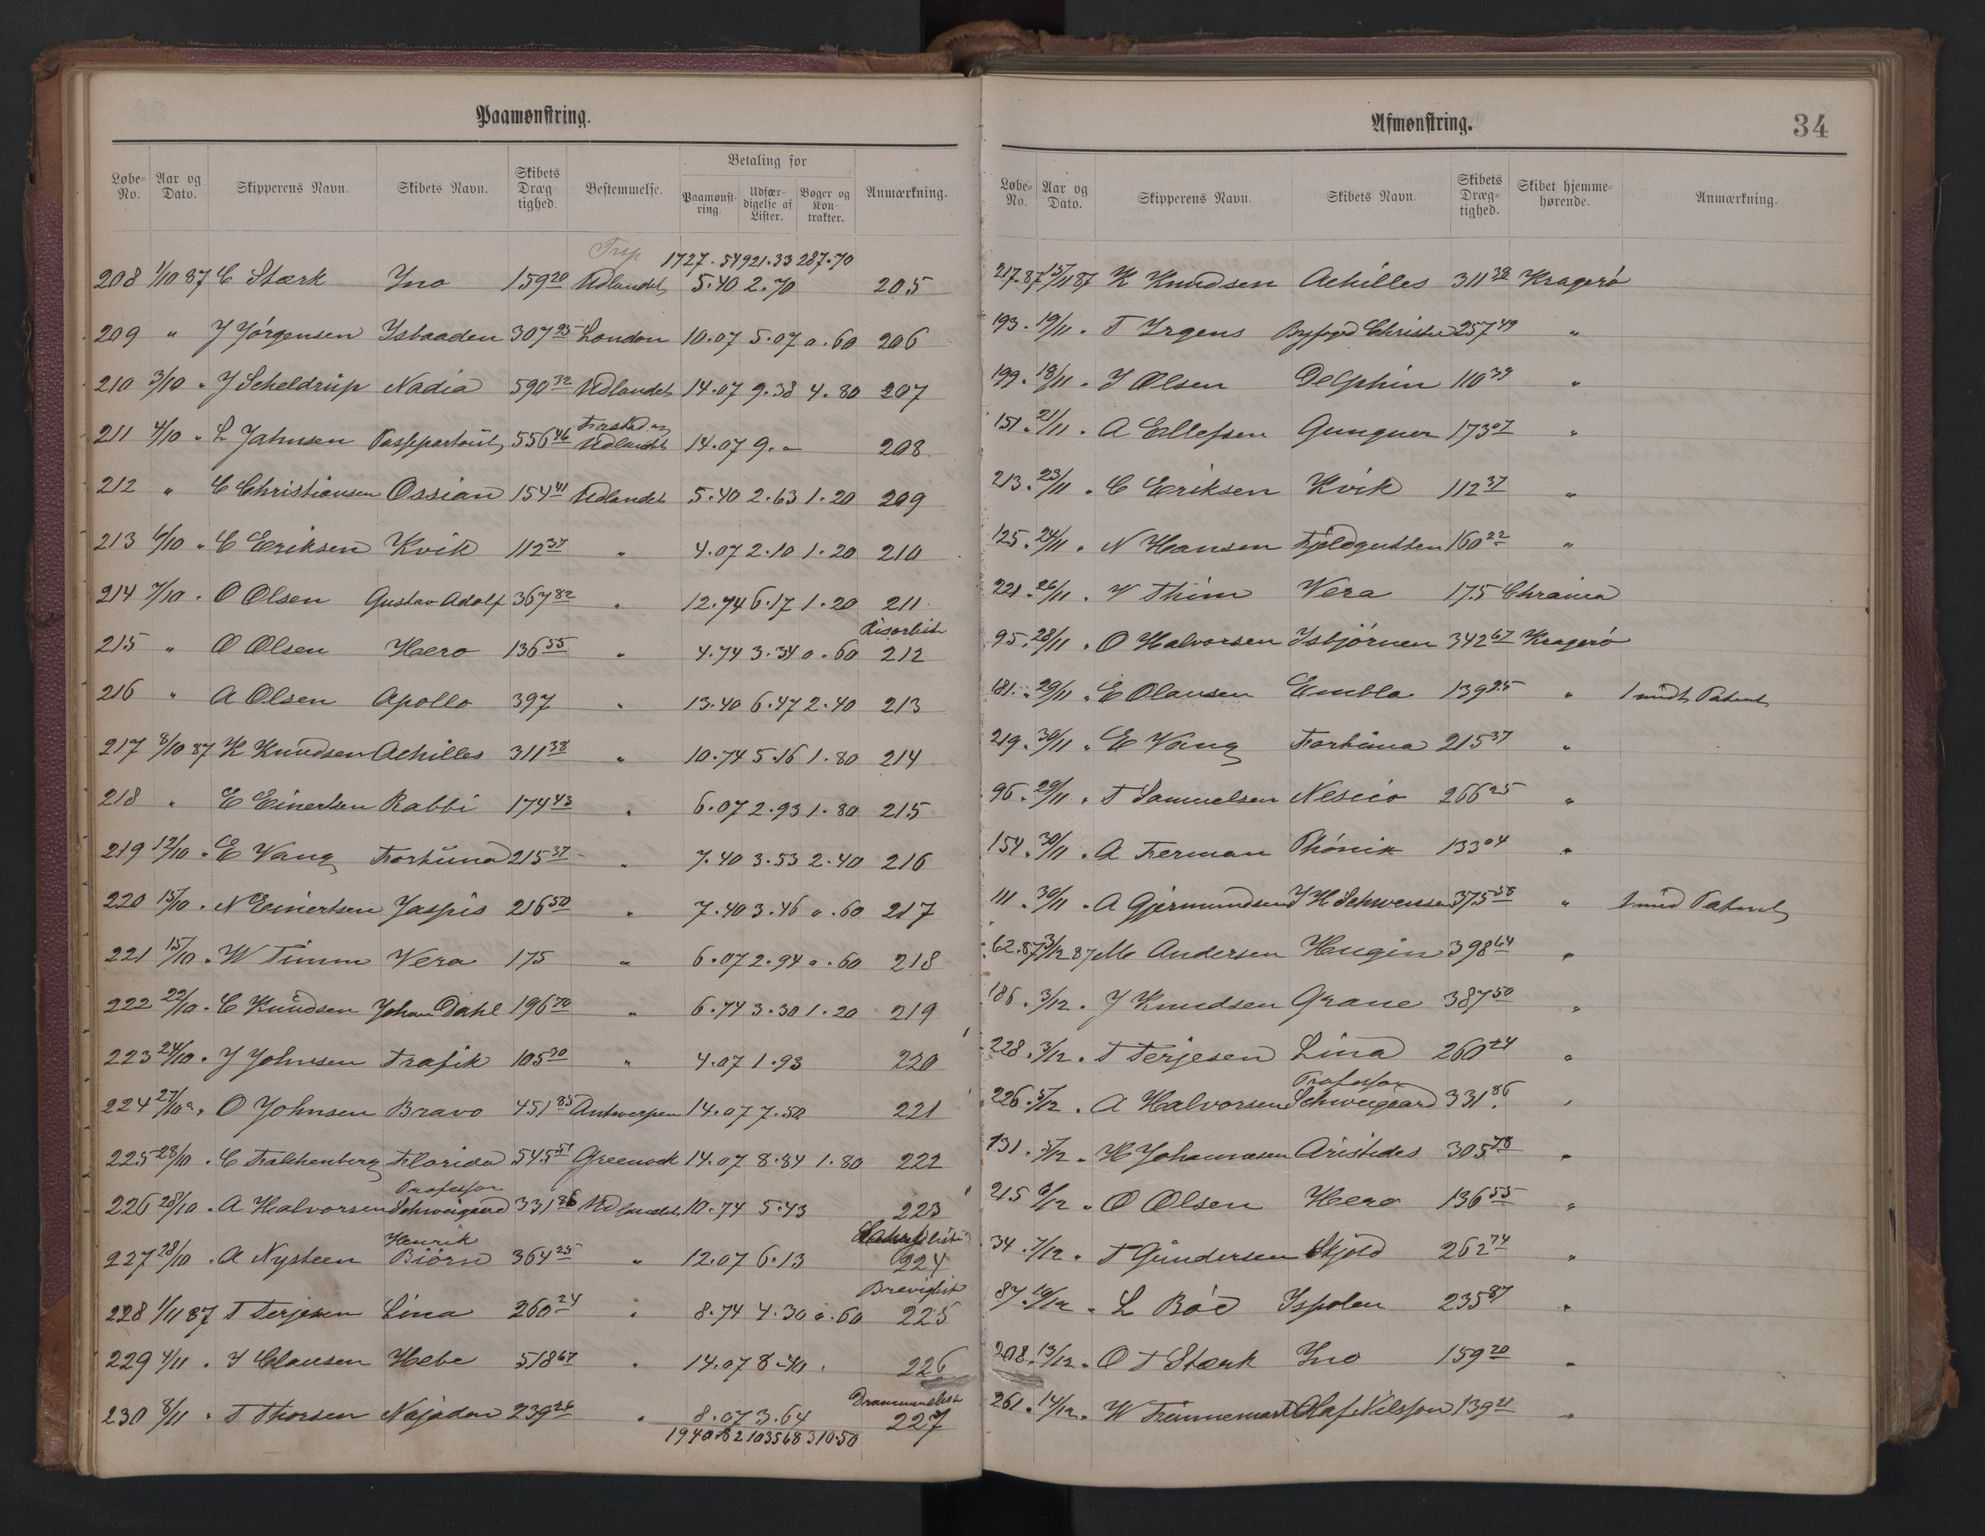 Paamønstring.
Løbe-No. Aar og Dato. Skipperens Navn. Skibets Navn. Skibets Dræg-tighed. Bestemmelse. Betaling for Paamønst-ring. Udfær-digelse af Lister. Bøger og Kon-trakter. Anmærkning.
1727.54 921.33 287.70
208 1/10 87 C Stærk Ino 159 20 Udlandet 5.40 2.70 205
209 " J Jørgensen Isbaaden 307 25 London 10.07 5.07 0.60 206
210 3/10 " J Scheldrup Nadia 590 32 Udlandet 14.07 9.38 4.80 207
211 4/10 " L Jahnsen Passpartout 556 46 Udlandet 14.07 9.- 208
212 " C Christiansen Ossian 154 41 Udlandet 5.40 2.63 1.20 209
213 6/10 " C Eriksen Kvik 112 37 " 4.07 2.10 1.20 210
214 7/10 " O Olsen Gustav Adolf 367 82 " 12.74 6.17 1.20 211
215 " O Olsen Hero 136 55 " 4.74 3.34 0.60 212
216 " A Olsen Apollo 397 " 13.40 6.47 2.40 213
217 8/10 87 K Knudsen Achilles 311 38 " 10.74 5.16 1.80 214
218 " E Einertsen Rabbi 174 43 " 6.07 2.93 1.80 215
219 12/10 " E Vang Fortuna 215 37 " 7.40 3.53 2.40 216
220 15/10 " N Einertsen Jaspis 216 50 " 7.40 3.46 0.60 217
221 15/10 " W Timm Vera 175 " 6.07 2.94 0.60 218
222 22/10 " C Knudsen Johan Dahl 196 70 " 6.74 3.30 1.20 219
223 24/10 " J Johnsen Trafik 105 30 " 4.07 1.93 220
224 27/10 " O Johnsen Bravo 451 85 Antwerpen 14.07 7.50 221
225 28/10 " C Falchenberg Florida 545 51 Greenock 14.07 8.84 1.80 222
226 28/10 " A Halvorsen Professor Schweigaard 331 86 Udlandet 10.74 5.43 223
227 28/10 " A Nysteen Henrik Biørn 364 25 " 12.07 6.13 224
228 1/11 87 T Terjesen Lina 260 24 " 8.74 4.30 0.60 Brevigliste 225
229 4/11 " J Clausen Hebe 518 67 " 14.07 8.40 226
230 8/11 " T Thorsen Najaden 239 26 " 8.07 3.64 227
1940.82 1035.68 310.50
Afmønstring.
34
Løbe-No. Aar og Dato. Skipperens Navn. Skibets Navn. Skibets Dræg-tighed. Skibet hjemme-hørende. Anmærkning.
217.87 15/11 87 K Knudsen Achilles 311 38 Kragerø
193 " 19/11 " T Irgens Byfoged Christie 257 49 "
199 " 18/11 " J Olsen Delphin 110 39 "
151 " 21/11 " A Ellefsen Gungner 173 07 "
213 " 23/11 " C Eriksen Kvik 112 37 "
125 " 24/11 " N Hansen Fjeldgutten 160 22 "
221 " 26/11 " V Thim Vera 175 Chrania
95 " 28/11 " O Halvorsen Isbjørnen 342 67 Kragerø
181 " 29/11 " E Olausen Embla 139 25 " 1 midt Patent
219 " 30/11 " E Vang Fortuna 215 37 "
96 " 29/11 " T Samuelsen Nescio 266 25 "
154 " 30/11 " A Ferman Phönix 133 04 "
111 " 30/11 " A Gjermundsen J H Schwensen 375 58 " 1 mid Patent
62.87 3/12 87 M Andersen Hugin 398 64 "
186 " 3/12 " J Knudsen Grane 387 50 "
228 " 3/12 " T Terjesen Lina 260 24 "
226 " 5/12 " A Halvorsen Professor Schweigaard 331 86 "
131 " 5/12 " H Johannesen Aristides 305 78 "
215 6/12 " O Olsen Hero 136 55 "
34 " 7/12 " T Gundersen Skjold 262 74 "
87 " 10/12 " L Röd Ispolen 235 87 "
208 " 13/12 " O T Stærk Ino 159 20 "
261 " 14/12 " W Olaf Nilsson 139 21 "